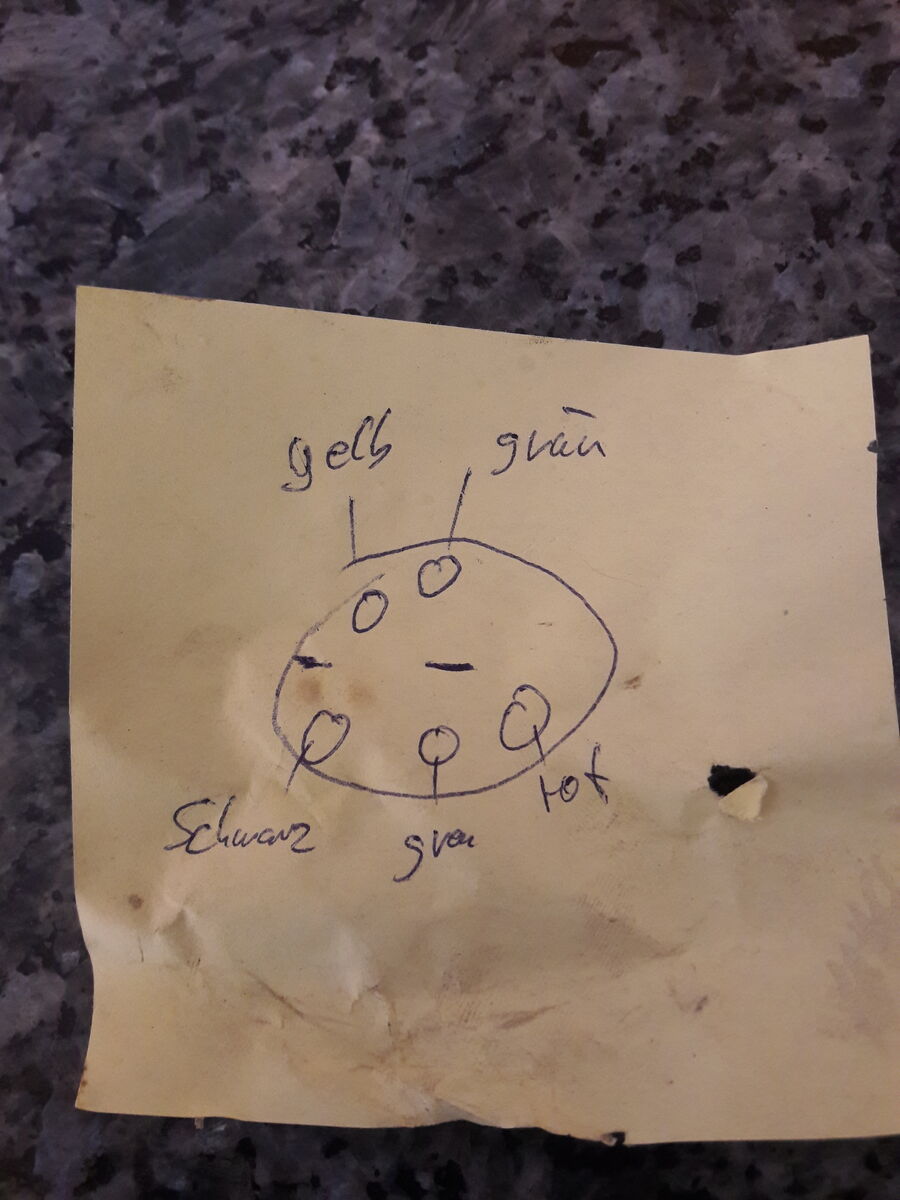 gelb grün
Schwarz grau rot